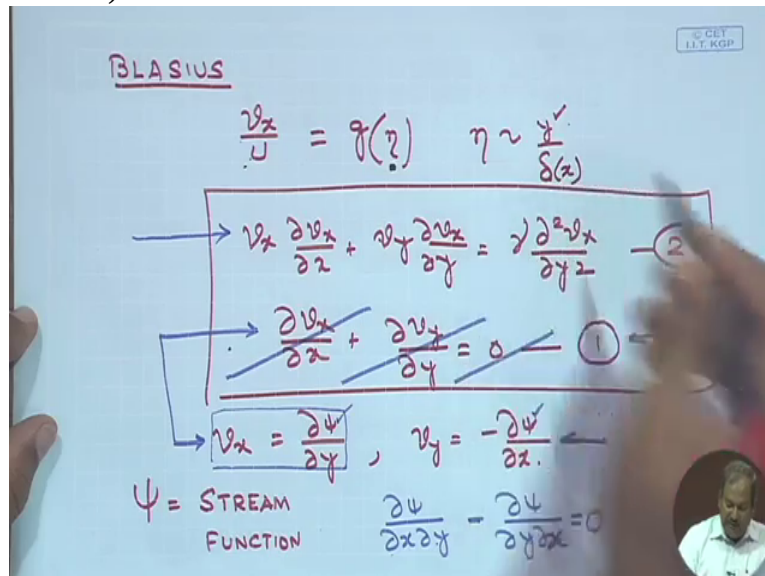 © CET
I.I.T. KGP
BLASIUS
vx/U = g(η) η ~ y/δ(x)
vx ∂vx/∂x + vy ∂vx/∂y = ν ∂²vx/∂y2 — 2
∂vx/∂x + ∂vy/∂y = 0 — 1
vx = ∂ψ/∂y , vy = -∂ψ/∂x.
Ψ = STREAM
FUNCTION ∂ψ/∂x∂y - ∂ψ/∂y∂x = 0